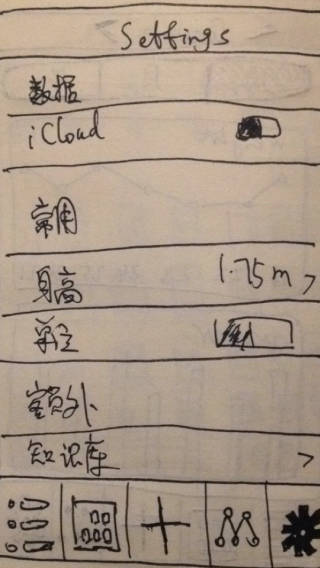 Settings
数据
iCloud
常用
身高 1.75m >
单位
额外
知识库 >